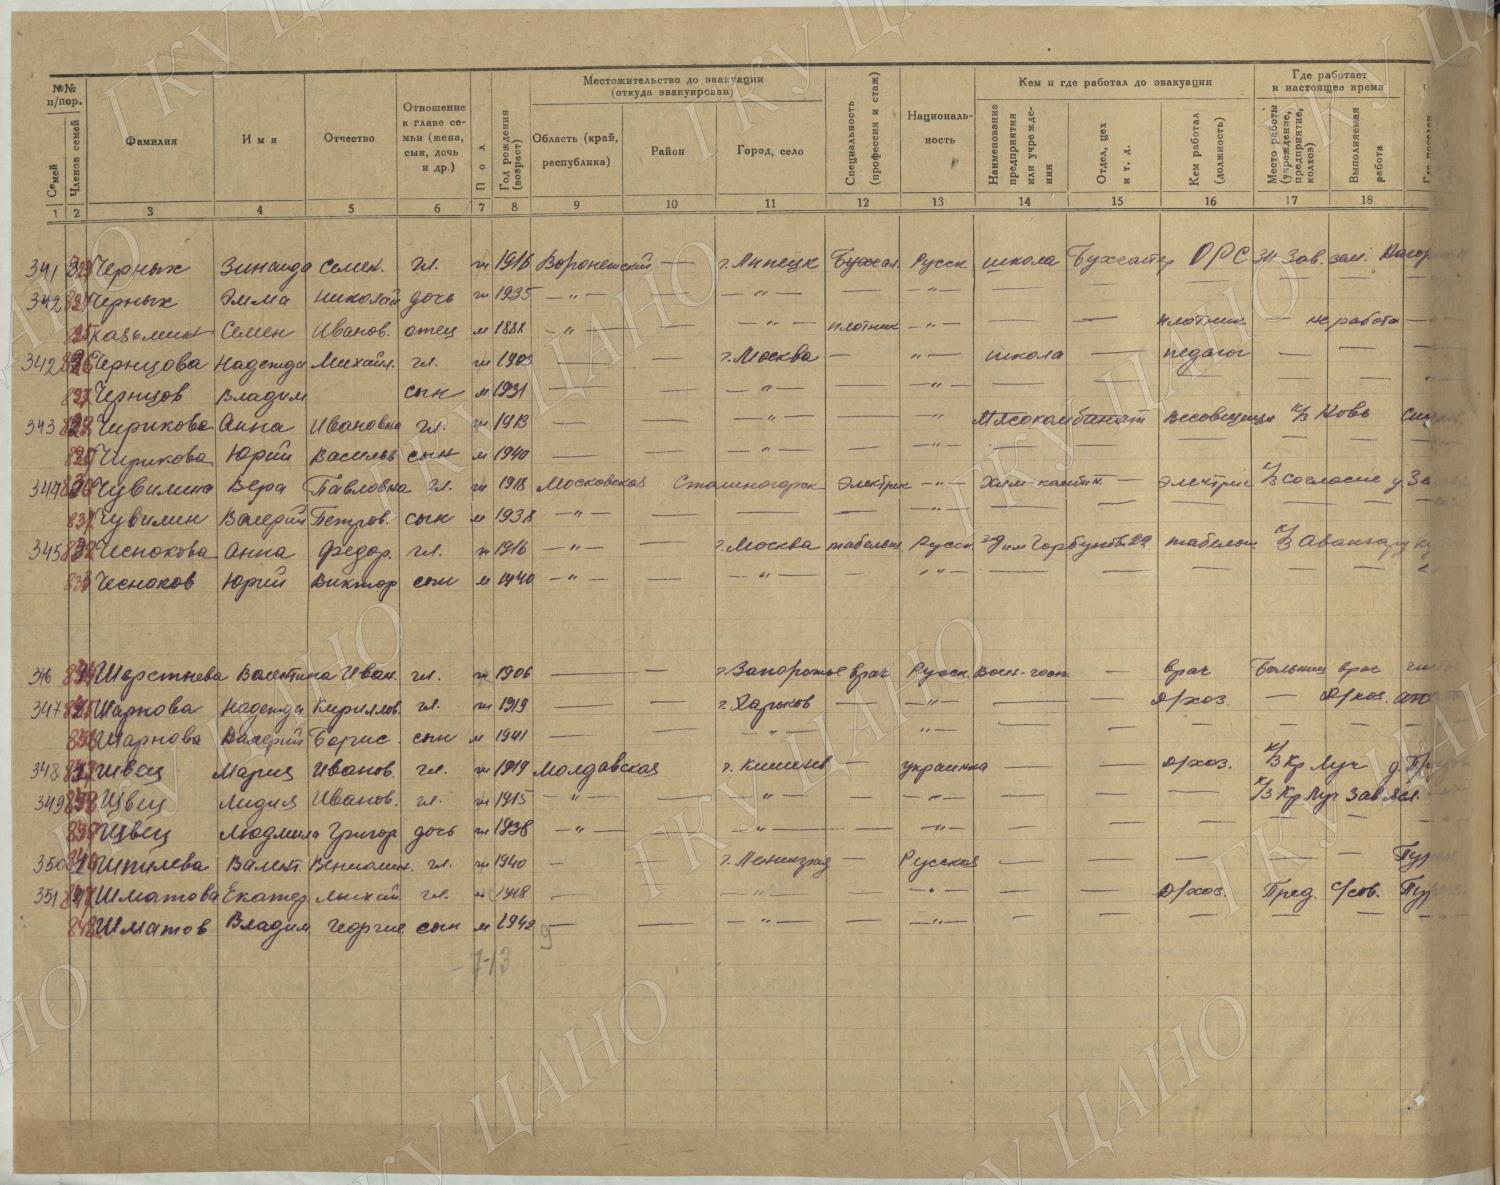 №№ п/пор.
Семей
Членов семей
Фамилия
Имя
Отчество
Отношение к главе семьи (жена, сын, дочь и др.)
Пол
Год рождения (возраст)
Местожительство до эвакуации (откуда эвакуирован)
Область (край, республика)
Район
Город, село
Специальность (профессия и стаж)
Националь-ность
Кем и где работал до эвакуации
Наименование предприятия или учрежде-ния
Отдел, цех и т. д.
Кем работал (должность)
Где работает в настоящее время
Место работы (учреждение, предприятие, колхоз)
Выполняемая работа
1 2 3 4 5 6 7 8 9 10 11 12 13 14 15 16 17 18
341 Черных Зинаида Семен. гл. ж 1916 Воронежский — г. Липецк Бухгал. Русск школа Бухгалтер ОРС Зав.
342 Черных Эмма Николай дочь ж 1935 — " — — — " — — — " — — — —
825 Казьмин Семен Иванов. отец м 1888 — " — — — " — плотник — " — — — плотник — не работа —
342 826 Чернцова Надежда Михайл. гл. ж 1903 — — г. Москва — — " — школа — педагог — —
827 Чернцов Владим сын м 1931 — — — " — — — " — — — — — —
343 828 Чирикова Анна Ивановна гл. ж 1913 — — — " — — — " — Мясокомбинат Весовщица к/з Новь
829 Чирикова Юрий Василь сын м 1940 — — — " — — — " — — — — — —
344 830 Чувилина Вера Павловна гл. ж 1918 Московская Сталиногорск Электрик — " — Хим-комбин. — электрик к/з Согласие д. За
831 Чувилин Валерий Петров. сын м 1938 — " — — — — — " — — — — — —
345 832 Чеснокова Анна Федор. гл. ж 1916 — — г. Москва табельщ Русск. им Горбунова 22 табельщ к/з Авангард
833 Чесноков Юрий Виктор сын м 1940 — " — — — " — — — " — — — — — —
346 834 Шерстнева Валентина Иван. гл. ж 1906 — — г. Запорожье врач Русск. Воен-госп. — врач Больниц врач
347 835 Шарнова Надежда Кириллов. гл. ж 1919 — — г. Харьков — — " — — — д/хоз. — д/хоз.
836 Шарнова Валерий Борис. сын м 1941 — — — " — — — " — — — — — —
348 837 Швец Мария Иванов. гл. ж 1919 Молдавская г. Кишинев — украинка — — д/хоз. к/з Кр Луч д. Пр
349 838 Швец Лидия Иванов. гл. ж 1915 — " — — — " — — — " — — — — к/з Кр Луч Зав ясл.
839 Швец Людмила Григор дочь ж 1938 — " — — — " — — — " — — — — — —
350 840 Шпилева Валент. Вениамин. гл. ж 1940 — — г. Ленинград — Русская — — — — —
351 841 Шматова Екатер Михай. гл. ж 1918 — — — " — — — " — — — д/хоз. Пред. с/сов.
842 Шматов Владим Георгие сын м 1942 — — — " — — — " — — — — — — —
7-13
9
ГКУ ЦАНО